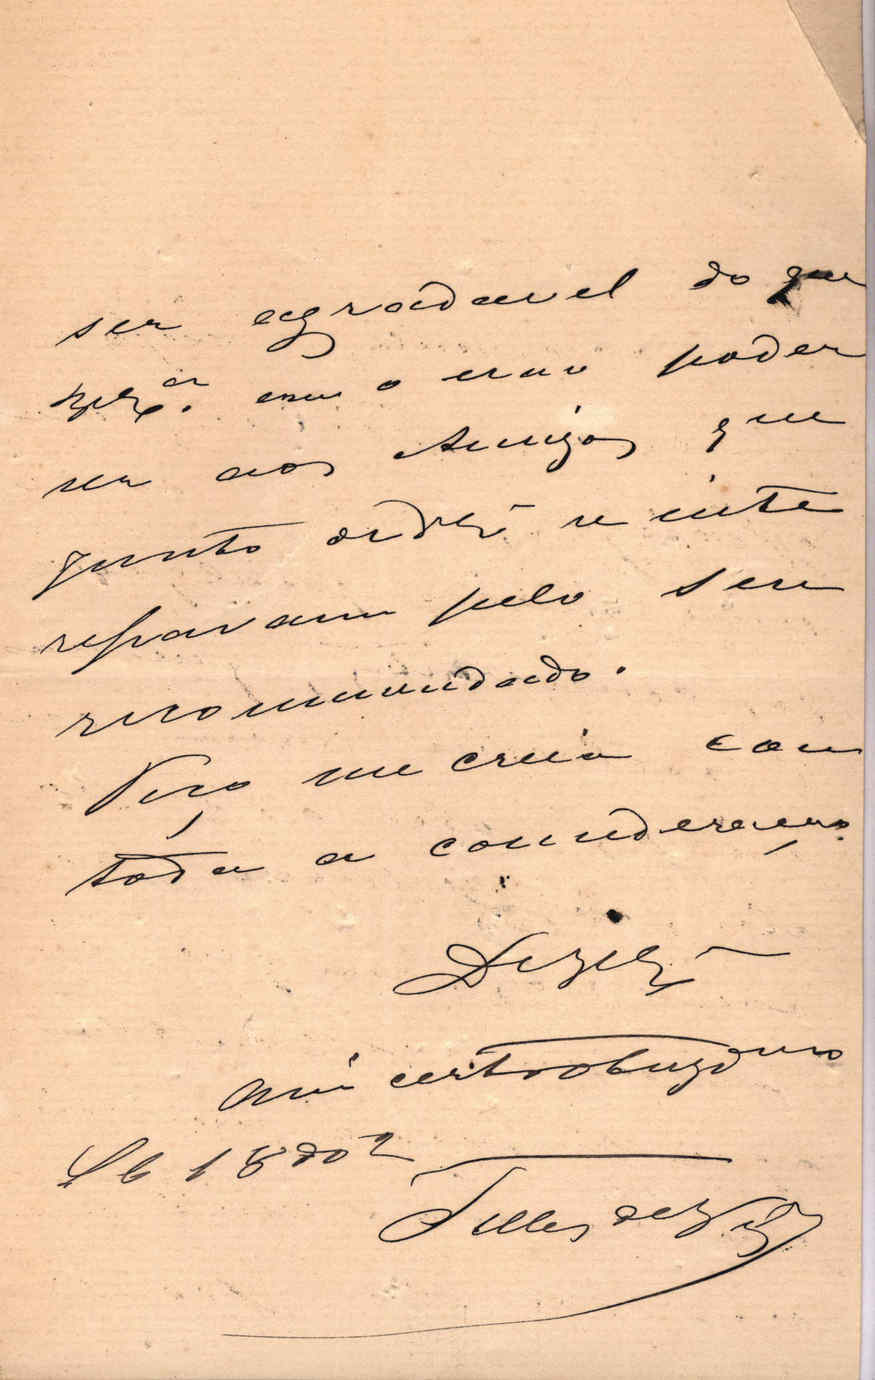 ser agradavel do que
V. Ex.cia em o meu poder
ser aos Amigos que
junto de V. Ex.ª se inte
ressavam pelo seu
recommendado.
Peço me creia com
toda a consideração.
De V. Ex.ª
am.º certo obrigdmo
18 do 2
Telles de